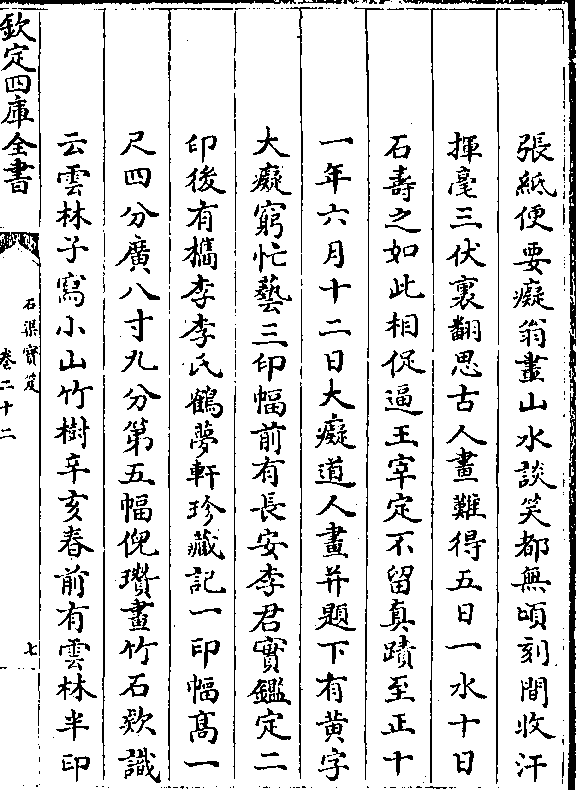 張紙便要癡翁畫山水談笑都無頃刻間收汗
揮毫三伏裏翻思古人畫難得五日一水十日
石壽之如此相促逼王宰定不留真蹟至正十
一年六月十二日大癡道人畫并題下有黄字
大癡窮忙藝三印幅前有長安李君實鑑定二
印後有檇李李氏鶴夢軒珍藏記一印幅髙一
尺四分廣八寸九分第五幅倪瓚畫竹石欵識
云雲林子寫小山竹樹辛亥春前有雲林半印
欽定四庫全書
石渠寶笈
卷二十二
七